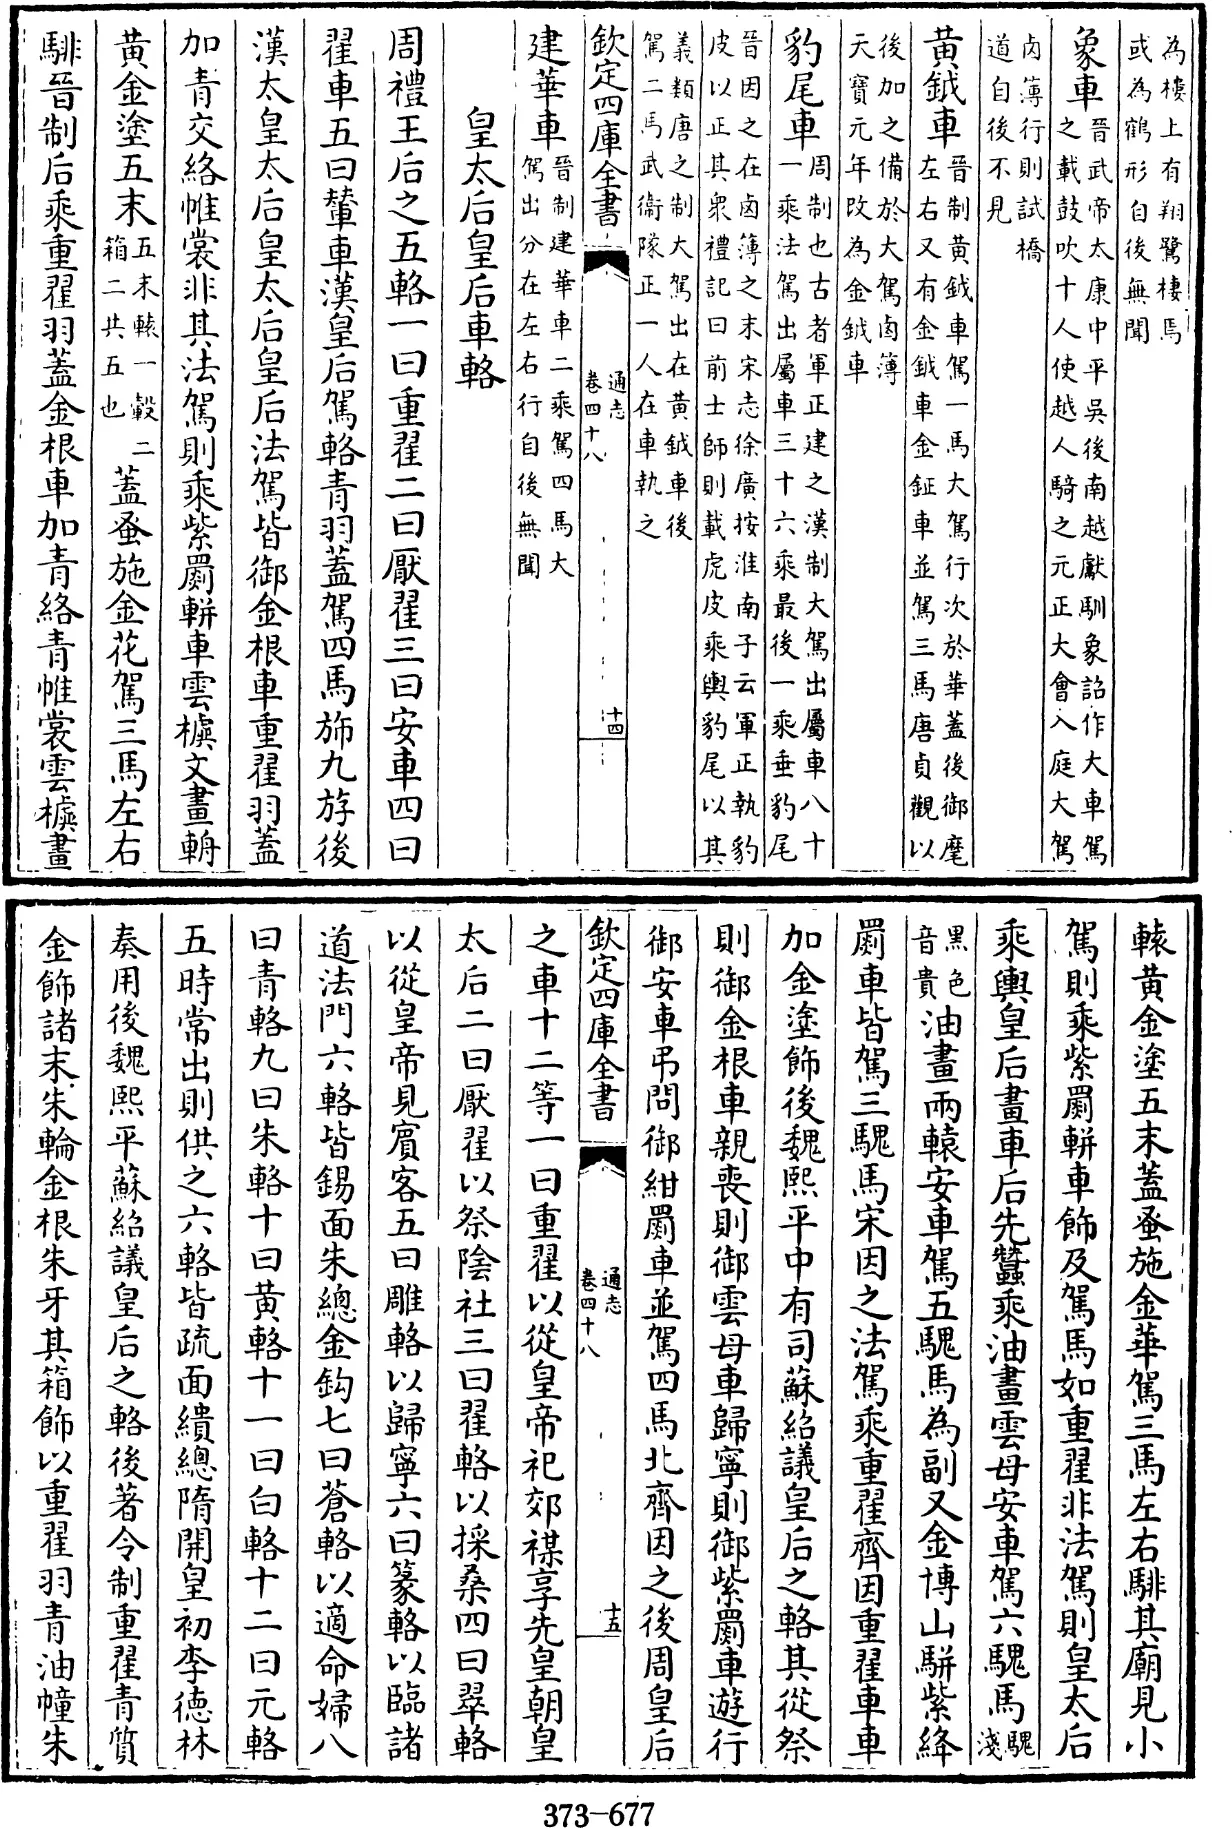 為樓上有翔鷺棲焉
或為鶴形自後無聞
象車晉武帝太康中平吳後南越獻馴象詔作大車駕
之載鼓吹十人使越人騎之元正大會入庭大駕
鹵簿行則試橋
道自後不見
黄鉞車晉制黄鉞車駕一馬大駕行次於華蓋後御麾
左右又有金鉞車金鉦車並駕三馬唐貞觀以
後加之備於大駕鹵簿
天寶元年改為金鉞車
豹尾車周制也古者軍正建之漢制大駕出屬車八十
一乘法駕出屬車三十六乘最後一乘垂豹尾
晉因之在鹵簿之末宋志徐廣按淮南子云軍正執豹
皮以正其衆禮記曰前士師則載虎皮乘輿豹尾以其
義類唐之制大駕出在黄鉞車後
駕二馬武衞隊正一人在車執之
欽定四庫全書
通志
卷四十八
十四
建華車晉制建華車二乘駕四馬大
駕出分在左右行自後無聞
皇太后皇后車輅
周禮王后之五輅一曰重翟二曰厭翟三曰安車四曰
翟車五曰輦車漢皇后駕輅青羽蓋駕四馬斾九斿後
漢太皇太后皇太后皇后法駕皆御金根車重翟羽蓋
加青交絡帷裳非其法駕則乘紫罽軿車雲㯫文畫輈
黄金塗五末五末轅一轂二
箱二共五也蓋蚤施金花駕三馬左右
騑晉制后乘重翟羽蓋金根車加青絡青帷裳雲㯫畫
轅黄金塗五末蓋蚤施金華駕三馬左右騑其廟見小
駕則乘紫罽軿車飾及駕馬如重翟非法駕則皇太后
乘輿皇后畫車后先蠶乘油畫雲母安車駕六騩馬騩
淺
黑色
音貴油畫兩轅安車駕五騩馬為副又金博山騈紫絳
罽車皆駕三騩馬宋因之法駕乘重翟齊因重翟車車
加金塗飾後魏熙平中有司蘇紹議皇后之輅其從祭
則御金根車親喪則御雲母車歸寧則御紫罽車遊行
御安車弔問御紺罽車並駕四馬北齊因之後周皇后
欽定四庫全書
通志
卷四十八
十五
之車十二等一曰重翟以從皇帝祀郊禖享先皇朝皇
太后二曰厭翟以祭陰社三曰翟輅以採桑四曰翠輅
以從皇帝見賓客五曰雕輅以歸寧六曰篆輅以臨諸
道法門六輅皆錫面朱總金鈎七曰蒼輅以適命婦八
曰青輅九曰朱輅十曰黄輅十一曰白輅十二曰元輅
五時常出則供之六輅皆疏面繢總隋開皇初李德林
奏用後魏熙平蘇紹議皇后之輅後著令制重翟青質
金飾諸末朱輪金根朱牙其箱飾以重翟羽青油幢朱
373-677